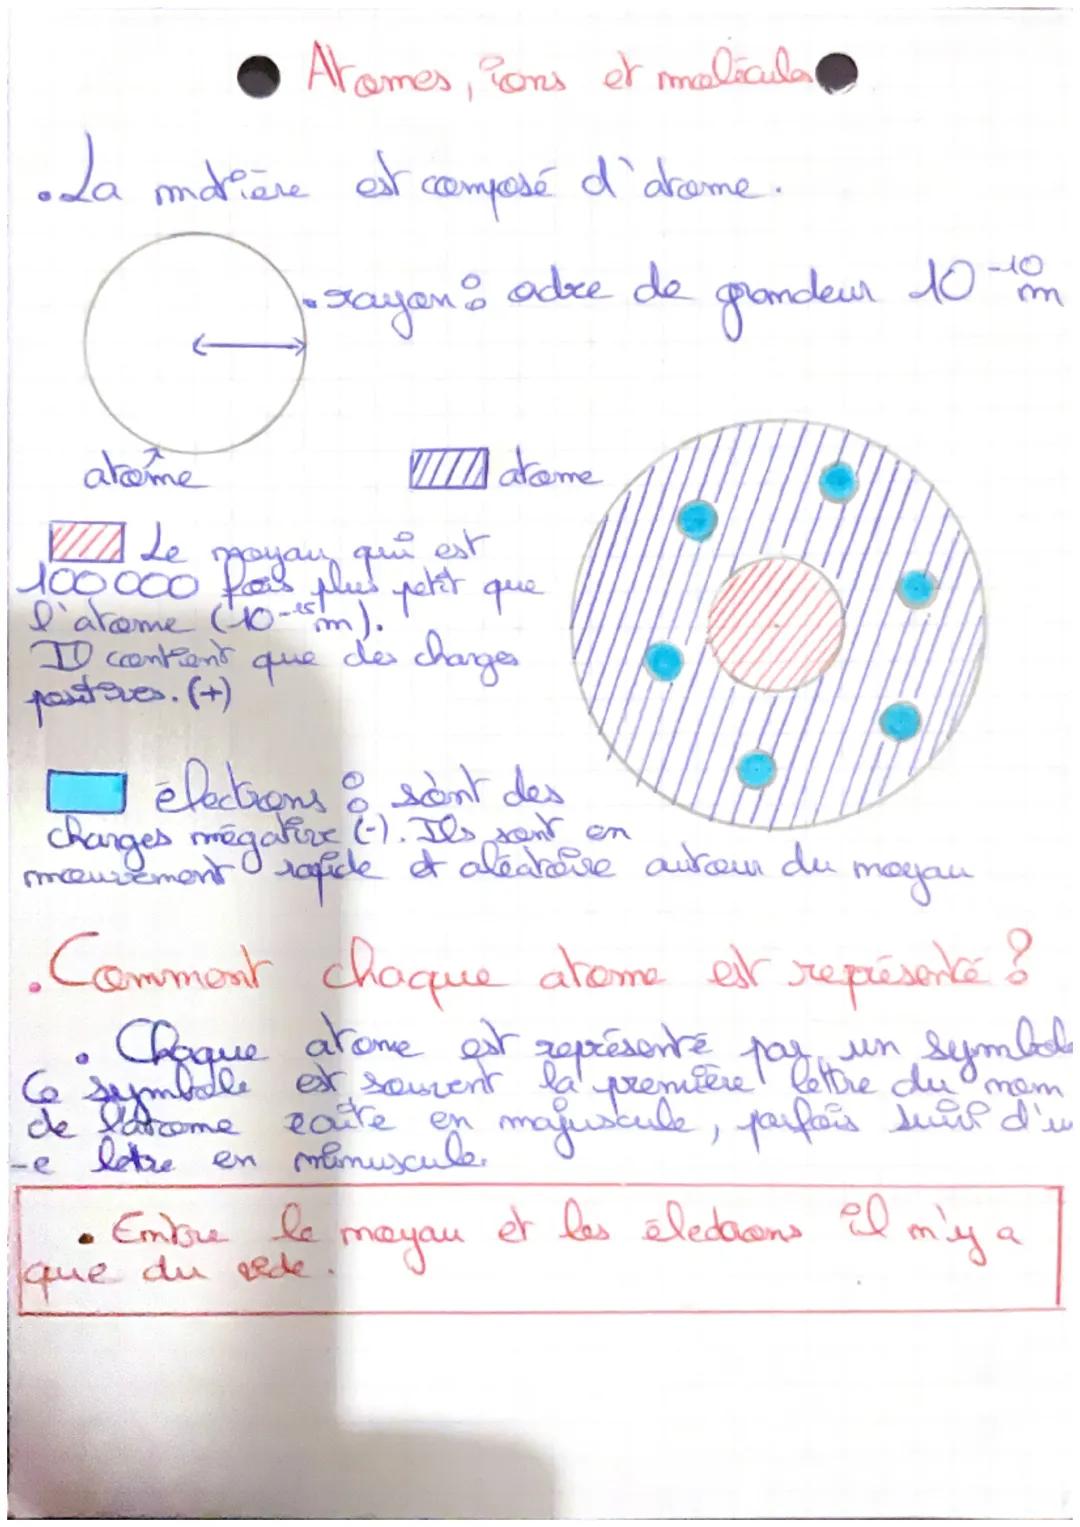 Atomes, ions et molécules
• La matière est composé d'atome.
• rayon : ordre de grandeur 10⁻¹⁰ m
atome
atome
Le noyau qui est
100 000 fois plus petit que
l'atome (10⁻¹⁵ m).
Il contient que des charges
positives. (+)
électrons : sont des
charges négative (-). Ils sont en
mouvement rapide et aléatoire autour du noyau
• Comment chaque atome est représenté ?
• Chaque atome est représenté par un symbole
Ce symbole est souvent la première lettre du nom
de l'atome écrite en majuscule, parfois suivi d'un
-e lettre en minuscule.
• Entre le noyau et les électrons il n'y a
que du vide.